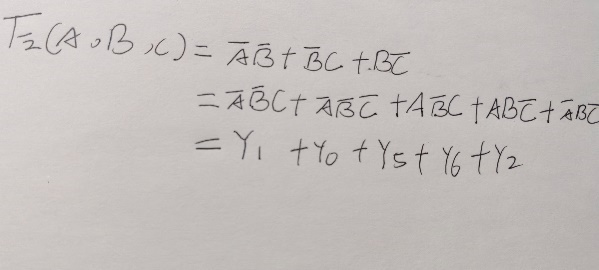 F₂(A,B,C) = A̅B̅ + B̅C + BC̅
= A̅B̅C + A̅B̅C̅ + AB̅C + ABC̅ + A̅BC̅
= Y₁ + Y₀ + Y₅ + Y₆ + Y₂